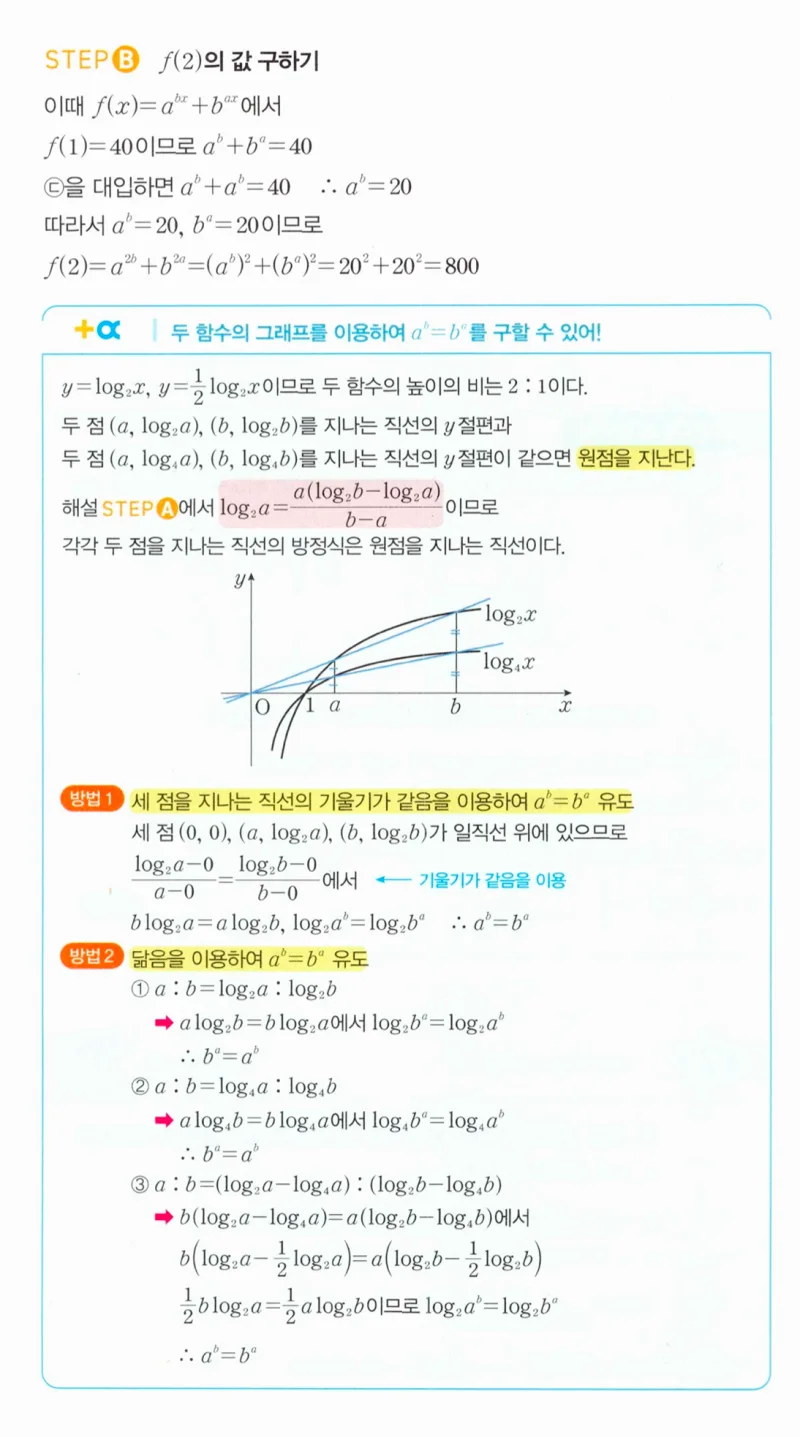 STEP B f(2)의 값 구하기
이때 f(x)=a^{bx}+b^{ax}에서
f(1)=40이므로 a^b+b^a=40
㉢을 대입하면 a^b+a^b=40 ∴ a^b=20
따라서 a^b=20, b^a=20이므로
f(2)=a^{2b}+b^{2a}=(a^b)^2+(b^a)^2=20^2+20^2=800
+α 두 함수의 그래프를 이용하여 a^b=b^a를 구할 수 있어!
y=log_2 x, y=\frac{1}{2}log_2 x이므로 두 함수의 높이의 비는 2 : 1이다.
두 점 (a, log_2 a), (b, log_2 b)를 지나는 직선의 y절편과
두 점 (a, log_4 a), (b, log_4 b)를 지나는 직선의 y절편이 같으면 원점을 지난다.
해설 STEP A에서 log_2 a=\frac{a(log_2 b-log_2 a)}{b-a}이므로
각각 두 점을 지나는 직선의 방정식은 원점을 지나는 직선이다.
y
log_2 x
log_4 x
O 1 a b x
방법 1 세 점을 지나는 직선의 기울기가 같음을 이용하여 a^b=b^a 유도
세 점 (0, 0), (a, log_2 a), (b, log_2 b)가 일직선 위에 있으므로
\frac{log_2 a-0}{a-0}=\frac{log_2 b-0}{b-0}에서 ← 기울기가 같음을 이용
b log_2 a=a log_2 b, log_2 a^b=log_2 b^a ∴ a^b=b^a
방법 2 닮음을 이용하여 a^b=b^a 유도
① a : b=log_2 a : log_2 b
➡ a log_2 b=b log_2 a에서 log_2 b^a=log_2 a^b
∴ b^a=a^b
② a : b=log_4 a : log_4 b
➡ a log_4 b=b log_4 a에서 log_4 b^a=log_4 a^b
∴ b^a=a^b
③ a : b=(log_2 a-log_4 a) : (log_2 b-log_4 b)
➡ b(log_2 a-log_4 a)=a(log_2 b-log_4 b)에서
b(log_2 a-\frac{1}{2}log_2 a)=a(log_2 b-\frac{1}{2}log_2 b)
\frac{1}{2}b log_2 a=\frac{1}{2}a log_2 b이므로 log_2 a^b=log_2 b^a
∴ a^b=b^a